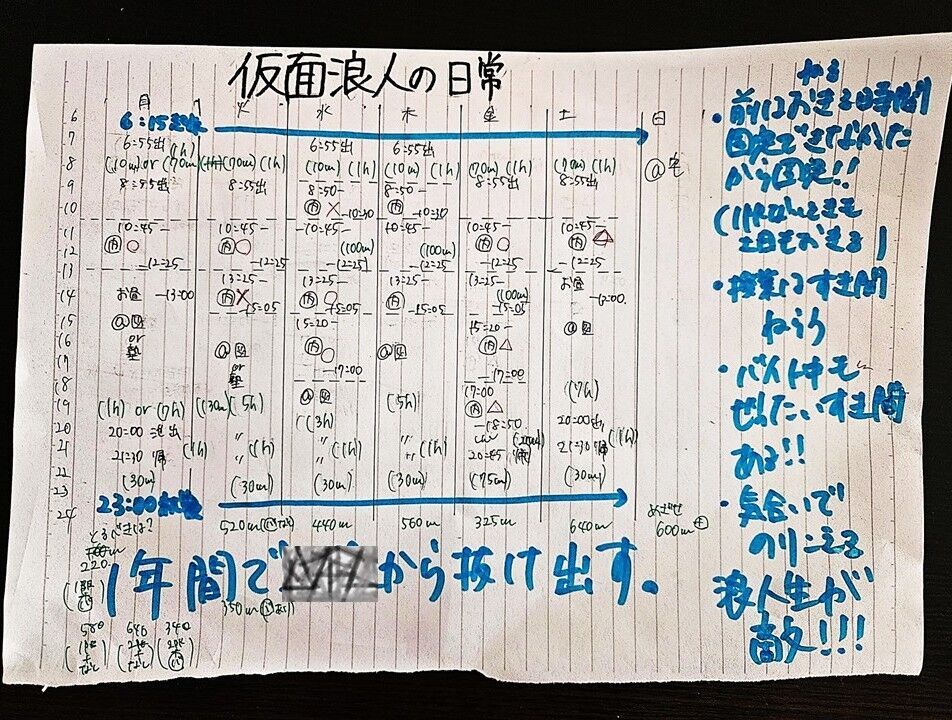 仮面浪人の日常
月 火 水 木 金 土 日
6 6:15起床
7 6:55出 (1h) 6:55出 6:55出
8 (10m) or (70m) (70m) (1h) (10m) (1h) (10m) (1h) (70m) (1h) (70m) (1h) @宅
9 8:55出 8:55出 8:50- 8:50- 8:55出 8:55出
10 内 × -10:30 内 -10:30
11 10:45- 10:45- 10:45- 10:45- 10:45- 10:45-
12 内 ○ 内 ○ (100m) (100m) 内 ○ 内 △
13 -12:25 -12:25 -12:25 -12:25 -12:25 -12:25
13:25- 13:25- 13:25- 13:25-
14 お昼 -13:00 内 × 内 ○ 内 (100m) お昼 -13:00
-15:05 -15:05 -15:05 -15:05
15 @図 15:20- 15:20- @図
16 or 内 ○ 内 △
塾 @図 @図
17 or -17:00 -17:00
18 塾 @図 17:00 (7h)
19 (1h) or (7h) (30m) (5h) (3h) (5h) 内 △
20 20:00 出 -18:50 20:00出
21 21:30 帰 (1h) 〃 (1h) 〃 (1h) 〃 (1h) 20:45 帰 21:30 帰 (1h)
22 (30m) (30m) (30m) (30m) (75m) (30m)
23 23:00就寝
24 520m 440m 560m 325m 640m めざせ 600m
220
350m
580 640 340
1年間で
から抜け出す。
・前はおきる時間
固定できなかった
から固定!!
・授業はすき間
ねらう
・バイト中も
ぜったいすき間
ある!!
・気合いで
のりこえる
浪人生が
敵!!!